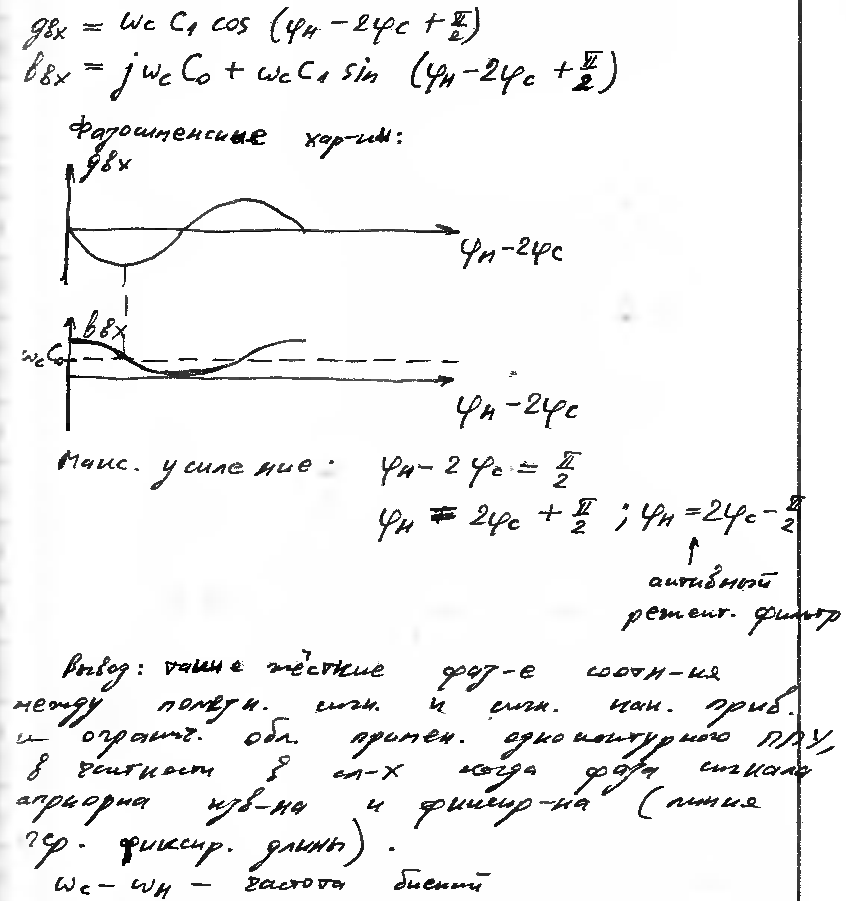 gвх = ωc C₁ cos (φн − 2φc + π/2)
bвх = jωc C₀ + ωc C₁ sin (φн − 2φc + π/2)
Фазочастотные хар-ки:
gвх
φн − 2φc
bвх
ωc C₀
φн − 2φc
Макс. усиление. φн − 2φc = π/2
φн = 2φc + π/2 ; φн = 2φc − π/2
активный
режект. фильтр
Вывод: такие жёсткие фаз-е соотн-ия
между сигн. и сигн. нак.
и огранич. обл. примен. одноконтурного ППУ,
в частности в сл-х когда фаза сигнала
априорна изв-на и фиксир-на (линия
пер. фиксир. длины).
ωc − ωн − частота биений